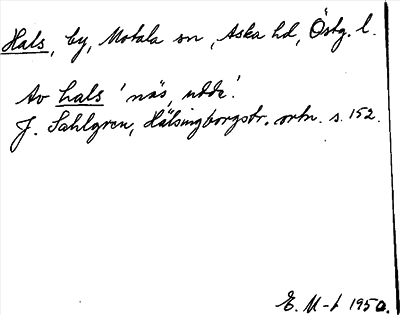 Hals, by, Motala sn, Aska hd, Östg. l.
Av hals 'näs, udde'.
J. Sahlgren, Hälsingborgstr. ortn. s. 152.
E. M-t 1950.